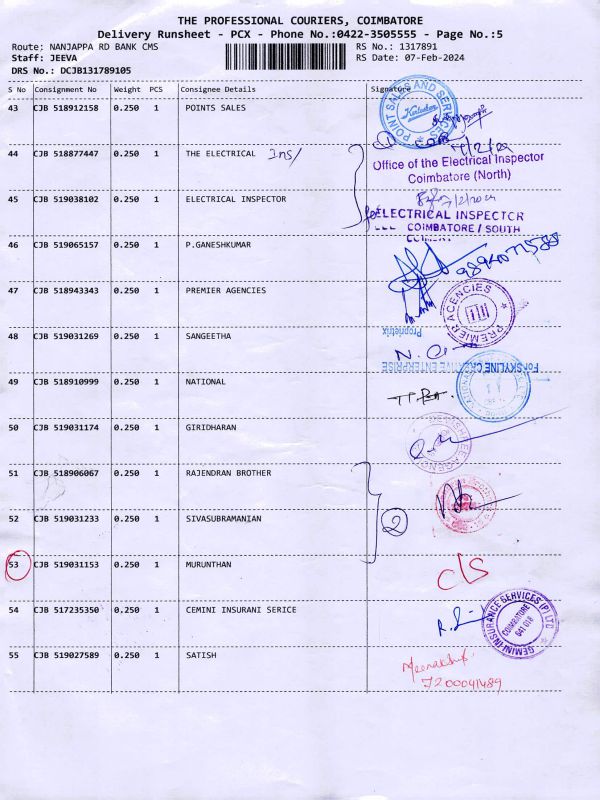 THE PROFESSIONAL COURIERS, COIMBATORE
Delivery Runsheet - PCX - Phone No.:0422-3505555 - Page No.:5
Route: NANJAPPA RD BANK CMS
RS No.: 1317891
Staff: JEEVA
RS Date: 07-Feb-2024
DRS No.: DCJB131789105
S No Consignment No Weight PCS Consignee Details Signature
43 CJB 518912158 0.250 1 POINTS SALES
POINT SALES AND SERVICES
44 CJB 518877447 0.250 1 THE ELECTRICAL Ins/
Office of the Electrical Inspector
Coimbatore (North)
45 CJB 519038102 0.250 1 ELECTRICAL INSPECTOR
ELECTRICAL INSPECTOR
COIMBATORE / SOUTH
46 CJB 519065157 0.250 1 P.GANESHKUMAR
47 CJB 518943343 0.250 1 PREMIER AGENCIES
PREMIER AGENCIES
48 CJB 519031269 0.250 1 SANGEETHA
Proprietrix
For SKYLINE CREATIVE ENTERPRISE
49 CJB 518910999 0.250 1 NATIONAL
50 CJB 519031174 0.250 1 GIRIDHARAN
51 CJB 518906067 0.250 1 RAJENDRAN BROTHER
2
52 CJB 519031233 0.250 1 SIVASUBRAMANIAN
53 CJB 519031153 0.250 1 MURUNTHAN
C/S
54 CJB 517235350 0.250 1 CEMINI INSURANI SERICE
GEMINI INSURANCE SERVICES (P) LTD
COIMBATORE
641 018
55 CJB 519027589 0.250 1 SATISH
7200041489